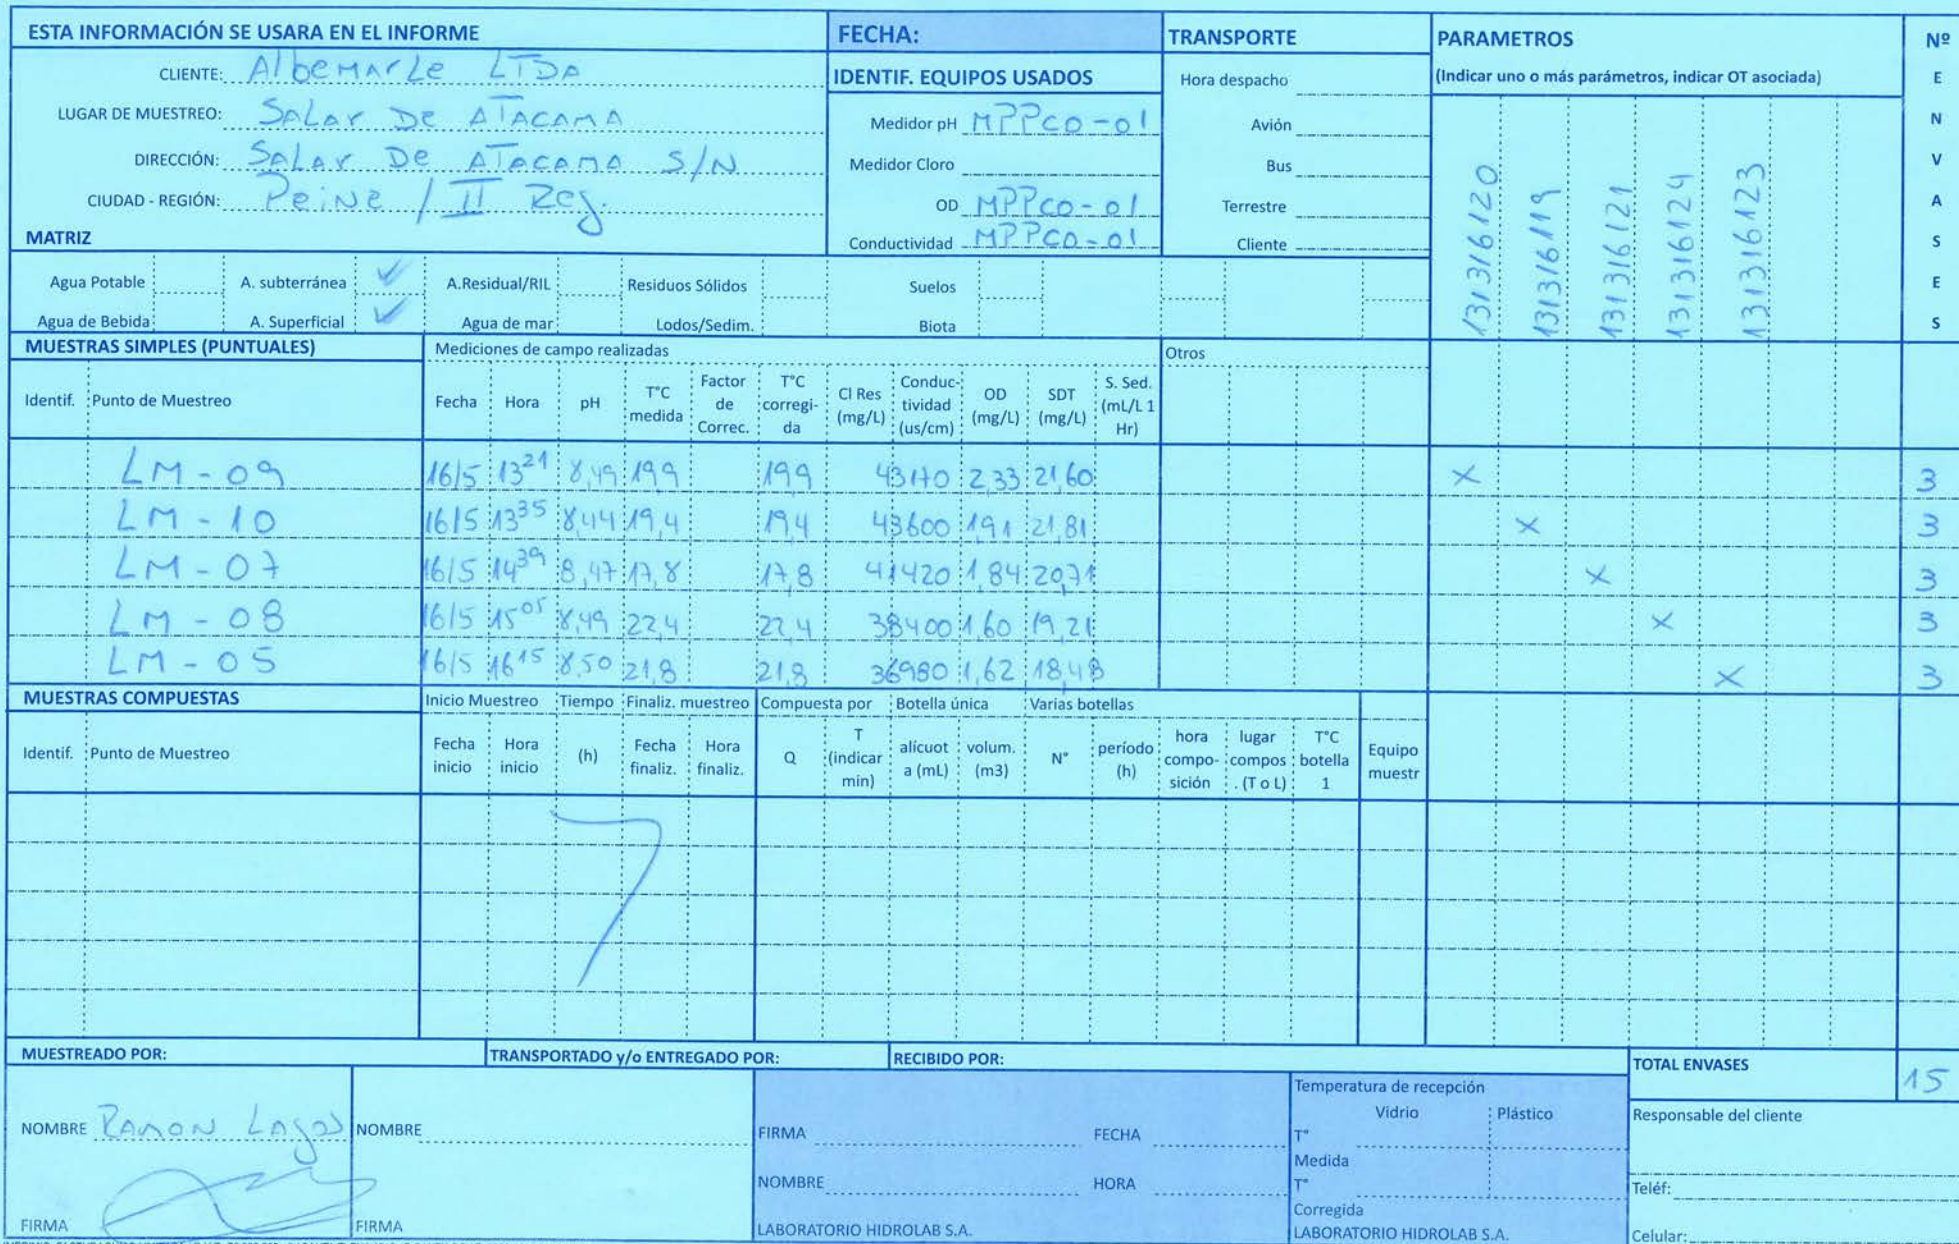 ESTA INFORMACIÓN SE USARA EN EL INFORME
CLIENTE: Albemarle LTDA
LUGAR DE MUESTREO: Salar De Atacama
DIRECCIÓN: Salar De Atacama S/N
CIUDAD - REGIÓN: Peine / II Reg.
FECHA:
IDENTIF. EQUIPOS USADOS
Medidor pH MPPCO-01
Medidor Cloro
OD MPPCO-01
Conductividad MPPCO-01
TRANSPORTE
Hora despacho
Avión
Bus
Terrestre
Cliente
PARAMETROS
(Indicar uno o más parámetros, indicar OT asociada)
131316120
131316119
131316121
131316124
131316123
Nº ENVASES
MATRIZ
Agua Potable A. subterránea ✓ A.Residual/RIL Residuos Sólidos Suelos
Agua de Bebida A. Superficial ✓ Agua de mar Lodos/Sedim. Biota
MUESTRAS SIMPLES (PUNTUALES) Mediciones de campo realizadas Otros
Identif. Punto de Muestreo Fecha Hora pH T°C medida Factor de Correc. T°C corregi-da Cl Res (mg/L) Conduc-tividad (us/cm) OD (mg/L) SDT (mg/L) S. Sed. (mL/L 1 Hr)
LM-09 16/5 13 21 8,49 19,9 19,9 43170 2,33 21,60 X 3
LM-10 16/5 13 35 8,44 19,4 19,4 43600 1,91 21,81 X 3
LM-07 16/5 14 39 8,47 17,8 17,8 41420 1,84 20,71 X 3
LM-08 16/5 15 05 8,49 22,4 22,4 38400 1,60 19,21 X 3
LM-05 16/5 16 15 8,50 21,8 21,8 36980 1,62 18,48 X 3
MUESTRAS COMPUESTAS Inicio Muestreo Tiempo Finaliz. muestreo Compuesta por Botella única Varias botellas
Identif. Punto de Muestreo Fecha inicio Hora inicio (h) Fecha finaliz. Hora finaliz. Q T (indicar min) alicuot a (mL) volum. (m3) N° período (h) hora compo-sición lugar compos . (T o L) T°C botella 1 Equipo muestr
MUESTREADO POR: TRANSPORTADO y/o ENTREGADO POR: RECIBIDO POR:
TOTAL ENVASES 15
NOMBRE Ramon Lagos
FIRMA
NOMBRE
FIRMA
FIRMA FECHA
NOMBRE HORA
LABORATORIO HIDROLAB S.A.
Temperatura de recepción
Vidrio Plástico
T° Medida
T° Corregida
LABORATORIO HIDROLAB S.A.
Responsable del cliente
Teléf:
Celular: